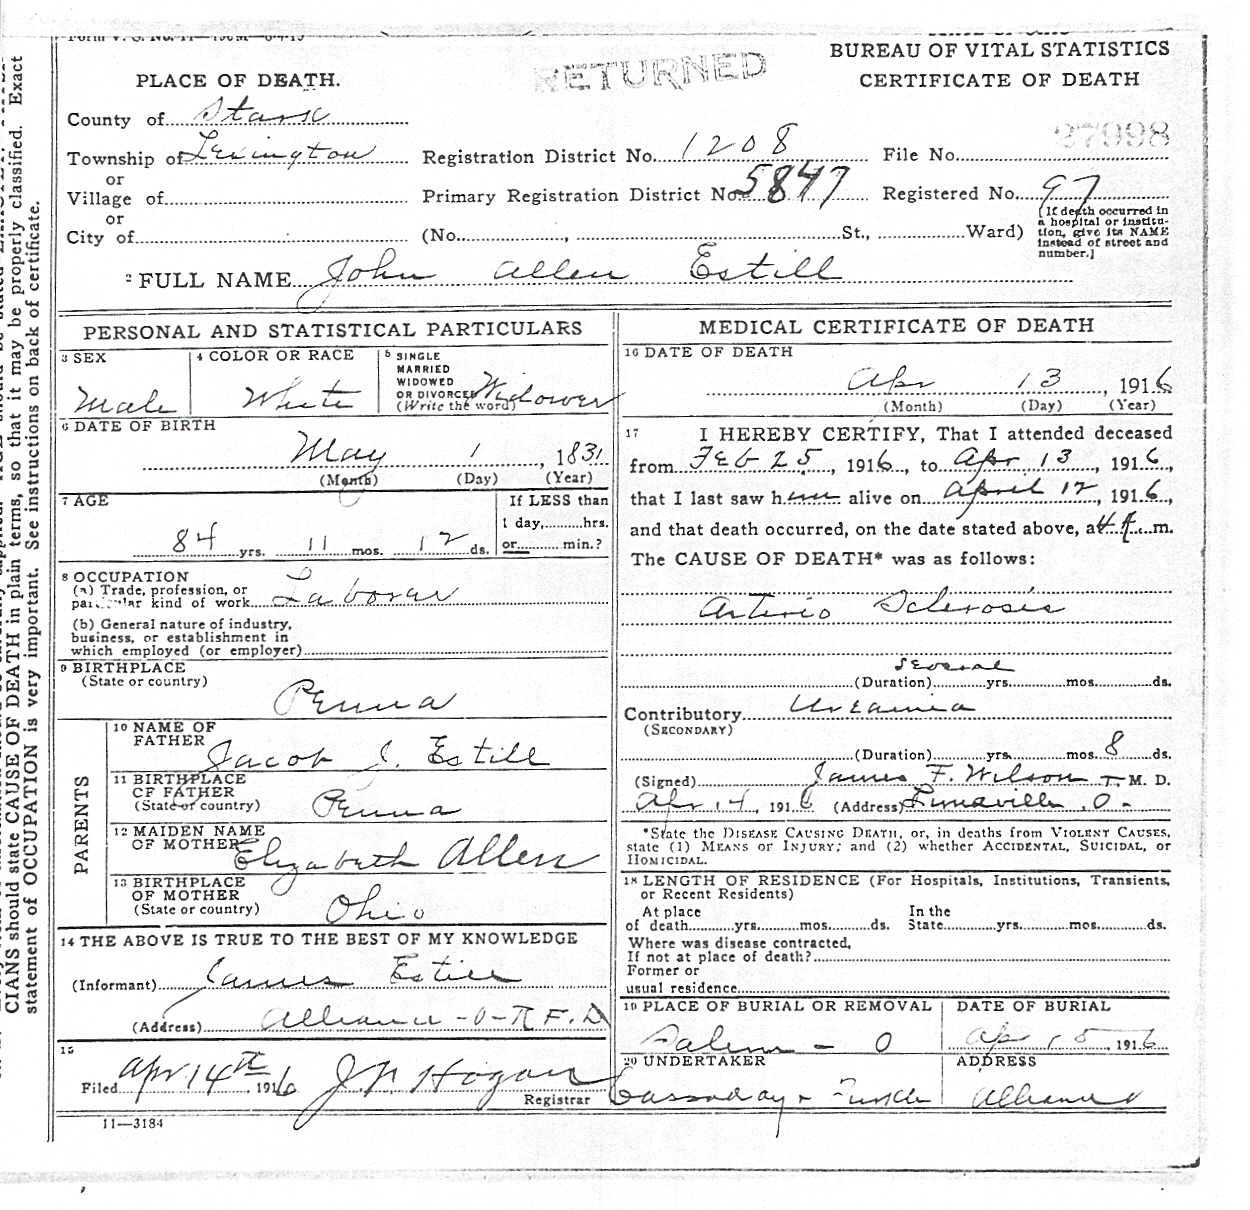 PLACE OF DEATH.
RETURNED
BUREAU OF VITAL STATISTICS
CERTIFICATE OF DEATH
County of Stark
27998
Township of Lexington Registration District No. 1208 File No.
or
Village of Primary Registration District No. 5847 Registered No. 97
or
City of (No. , St., Ward)
[If death occurred in
a hospital or institu-
tion, give its NAME
instead of street and
number.]
2 FULL NAME John Allen Estill
PERSONAL AND STATISTICAL PARTICULARS
3 SEX
Male
4 COLOR OR RACE
White
5 SINGLE
MARRIED
WIDOWED
OR DIVORCED
(Write the word)
Widower
6 DATE OF BIRTH
May 1, 1831
(Month) (Day) (Year)
7 AGE
84 yrs. 11 mos. 12 ds.
If LESS than
1 day, hrs.
or min.?
8 OCCUPATION
(a) Trade, profession, or
particular kind of work Laborar
(b) General nature of industry,
business, or establishment in
which employed (or employer)
9 BIRTHPLACE
(State or country)
Penna
PARENTS
10 NAME OF
FATHER
Jacob J. Estill
11 BIRTHPLACE
OF FATHER
(State or country)
Penna
12 MAIDEN NAME
OF MOTHER
Elizabeth Allen
13 BIRTHPLACE
OF MOTHER
(State or country)
Ohio
14 THE ABOVE IS TRUE TO THE BEST OF MY KNOWLEDGE
(Informant) James Estill
(Address) Alliance - O - R F. D
15
Filed Apr 14th 1916 J N Hogan
Registrar
11—3184
MEDICAL CERTIFICATE OF DEATH
16 DATE OF DEATH
Apr 13, 1916
(Month) (Day) (Year)
17 I HEREBY CERTIFY, That I attended deceased
from Feb 25, 1916, to Apr 13, 1916,
that I last saw him alive on April 12, 1916,
and that death occurred, on the date stated above, at m.
The CAUSE OF DEATH* was as follows:
Arterio Sclerosis
several
(Duration) yrs. mos. ds.
Contributory Uraemia
(SECONDARY)
(Duration) yrs. mos. 8 ds.
(Signed) James F. Wilson M. D.
Apr 14, 1916 (Address) Limaville, O-
*State the DISEASE CAUSING DEATH, or, in deaths from VIOLENT CAUSES,
state (1) MEANS OF INJURY; and (2) whether ACCIDENTAL, SUICIDAL, or
HOMICIDAL.
18 LENGTH OF RESIDENCE (For Hospitals, Institutions, Transients,
or Recent Residents)
At place In the
of death yrs. mos. ds. State yrs. mos. ds.
Where was disease contracted,
If not at place of death?
Former or
usual residence
19 PLACE OF BURIAL OR REMOVAL
Salem - O
DATE OF BURIAL
Apr 15, 1916
20 UNDERTAKER
Cassaday +
ADDRESS
Alliance
CIANS should state CAUSE OF DEATH in plain terms, so that it may be properly classified. Exact
statement of OCCUPATION is very important. See instructions on back of certificate.